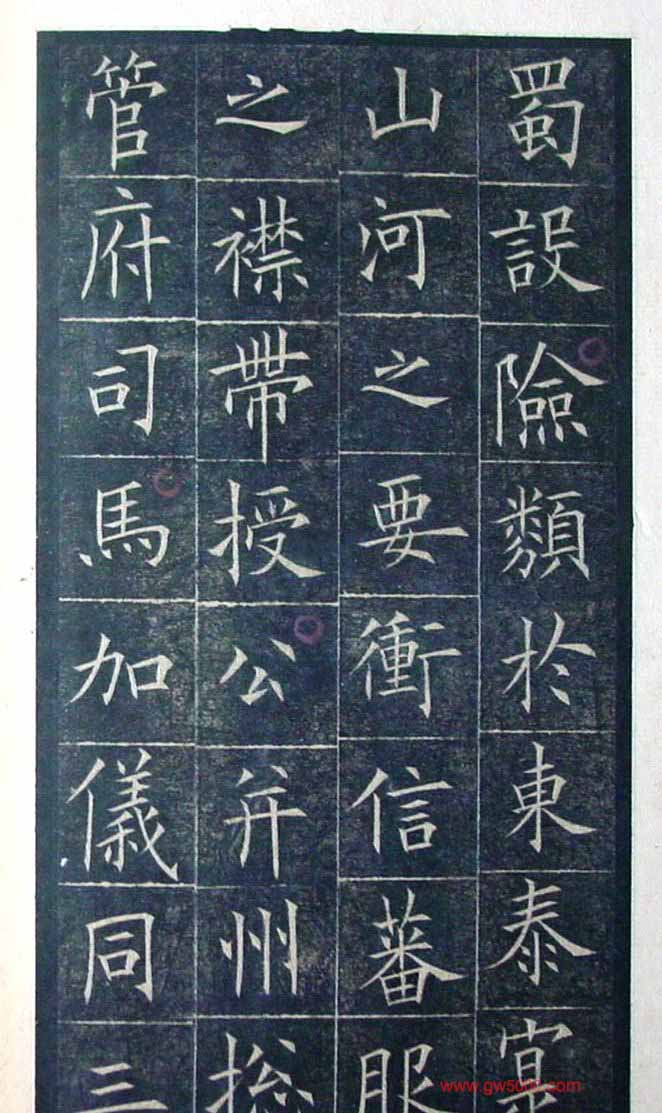 蜀設險類於東泰寔
山河之要衝信蕃服
之襟帶授公并州捴
管府司馬加儀同三
www.gw5000.com